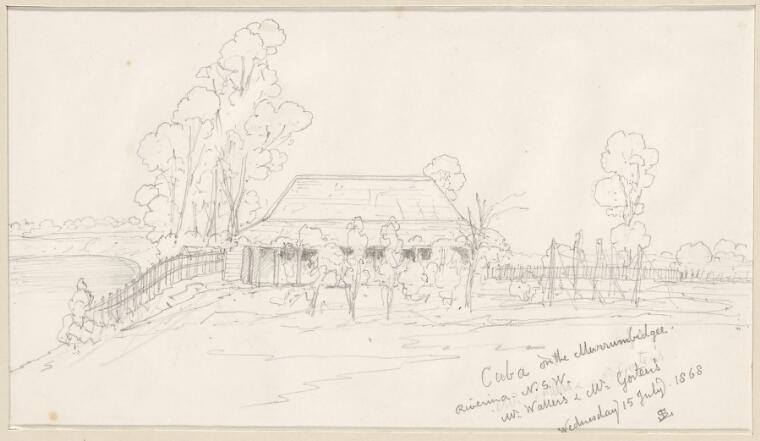 Cuba on the Murrumbidgee.
Riverina. N.S.W.
Mr. Waller's & Mr. Gorten's
Wednesday 15 July. 1868